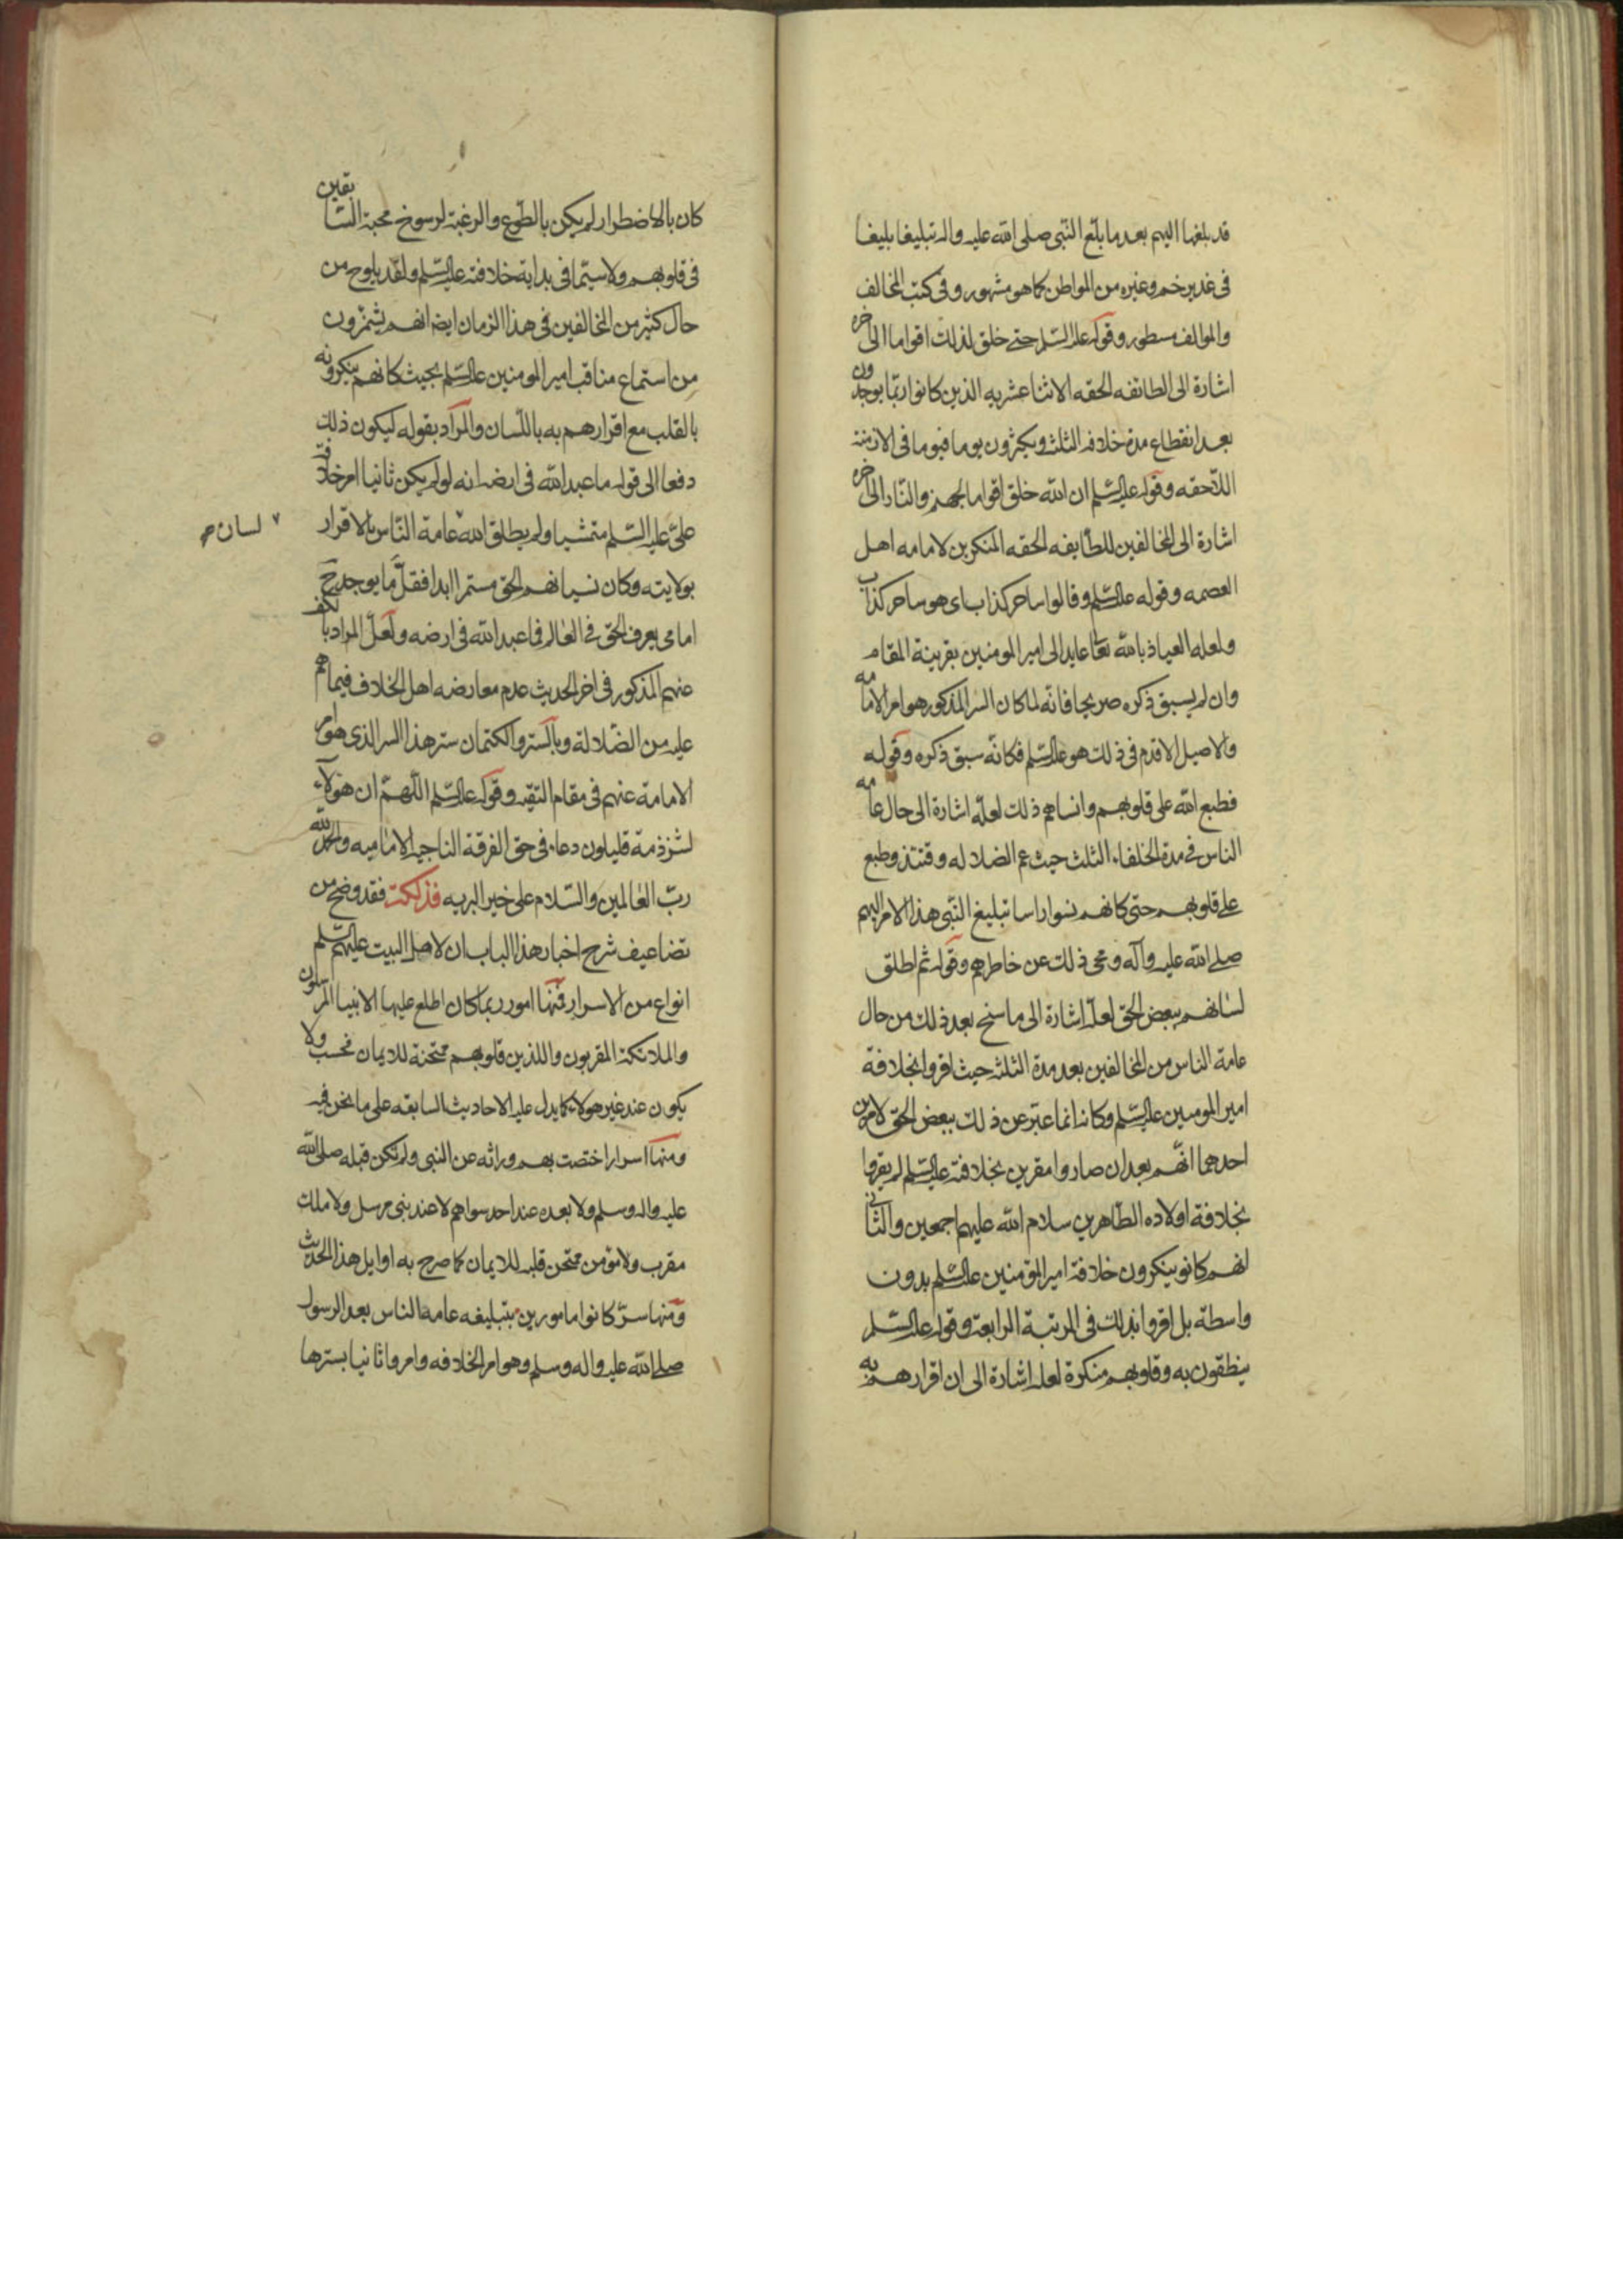 قد بلغها اليهم بعد ما بلغ النبى صلى الله عليه واله تبليغا بليغا
فى غدير خم وغيره من المواطن كما هو مشهور وفى كتب المخالف
والموالف مسطور وقوله علیه السّلم حتى خلق لذلك اقواما الى اخره
اشارة الى الطائفه الحقه الاثنا عشريه الذين كانوا ربّما يوجدون
بعد انقطاع مدة خلافه الثلث ويكثرون يوما فيوما فى الازمنة
اللاحقه وقوله عليه السّلم ان الله خلق اقواما لجهنم والنّار الى اخره
اشارة الى المخالفين للطّايفه الحقه المنكرين لامامه اهل
العصمه وقوله عليه السّلم وقالوا ساحر كذاب اى هو ساحر كذاب
ولعله العياذ بالله تعا عايد الى امير المومنين بقرينة المقام
وان لم يسبق ذكره صريحا فانّه لما كان السر المذكور هو امر الامامه
والاصيل الاقدم فى ذلك هو عليه السّلم فكانّه سبق ذكره وقوله
فطبع الله على قلوبهم وانساهم ذلك لعلّه اشارة الى حال عامه
الناس فى مدة الخلفاء الثلث حيث عم الضلاله وقتئذ وطبع
على قلوبهم حتى كانهم نسوا راسا تبليغ النّبى هذا الامر اليهم
صلى الله عليه وآله ومحى ذلك عن خاطرهم وقوله ثم اطلق
لسانهم ببعض الحق لعلّه اشارة الى ما سنح بعد ذلك من حال
عامة الناس من المخالفين بعد مدة الثلثه حيث اقروا بخلافة
امير المومنين عليه السّلم وكانه انما عبّر عن ذلك ببعض الحق لامرين
احدهما انّهم بعد ان صاروا مقرين بخلافته عليه السّلم لم يقروا
بخلافة اولاده الطّاهرين سلام الله عليهم اجمعين والثانى
انهم كانو ينكرون خلافة امير المؤمنين عليه السّلم بدون
واسطة بل اقروا بذلك فى المرتبة الرابعة وقوله عليه السّلم
ينطقون به وقلوبهم منكرة لعله اشارة الى ان اقرارهم به
كان بالاضطرار لم يكن بالطّوع والرغبة لرسوخ محبة السّابقين
فى قلوبهم ولا سيّما فى بداية خلافته عليه السّلم ولقد يلوح من
حال كثير من المخالفين فى هذا الزمان ايضا انهم يشمئزون
من استماع مناقب امير المومنين عليه السّلم بحيث كانهم ينكرونه
بالقلب مع اقرارهم به باللّسان والمراد بقوله ليكون ذلك
دفعا الى قوله ما عبد الله فى ارضه انه لو لم يكن ثانيا امر خلافة
علىّ عليه السّلم متمشيا ولم يطلق الله عامة النّاس بالاقرار
لسان صح
بولايته وكان نسيانهم الحق مستمرا ابدا فقلّ ما يوجد ح
امامى يعرف الحق فى العالم فما عبد الله فى ارضه ولعلّ المراد بالكف
عنهم المذكور فى اخر الحديث عدم معارضه اهل الخلاف فيما هم
عليه من الضّلالة وبالستر والكتمان ستر هذا السر الذى هو امر
الامامة عنهم فى مقام التقيه وقوله عليه السّلم اللّهمّ ان هؤلاء
لشرذمة قليلون دعاء فى حق الفرقة الناجيه الاماميه والحمد لله
ربّ العالمين والسّلام على خير البريه فذلكة فقد وضح من
تضاعيف شرح اخبار هذا الباب ان لاهل البيت عليهم السّلم
انواع من الاسرار فمنها امور ربما كان اطلع عليها الانبيا المرسلون
والملائكة المقربون واللذين قلوبهم ممتحنة للايمان فحسب ولا
يكون عند غير هولاء كما يدل عليه الاحاديث السابقه على ما نحن فيه
ومنها اسرار اختصت بهم وراثه عن النبى ولم تكن قبله صلى الله
عليه واله وسلم ولا بعده عند احد سواهم لا عند بنى مرسل ولا ملك
مقرب ولا مؤمن ممتحن قلبه للايمان كما صرح به اوايل هذا الحديث
ومنها سرّ كانوا مامورين بتبليغه عامه الناس بعد الرسول
صلى الله عليه واله وسلم وهو امر الخلافه وامروا ثانيا بسترها